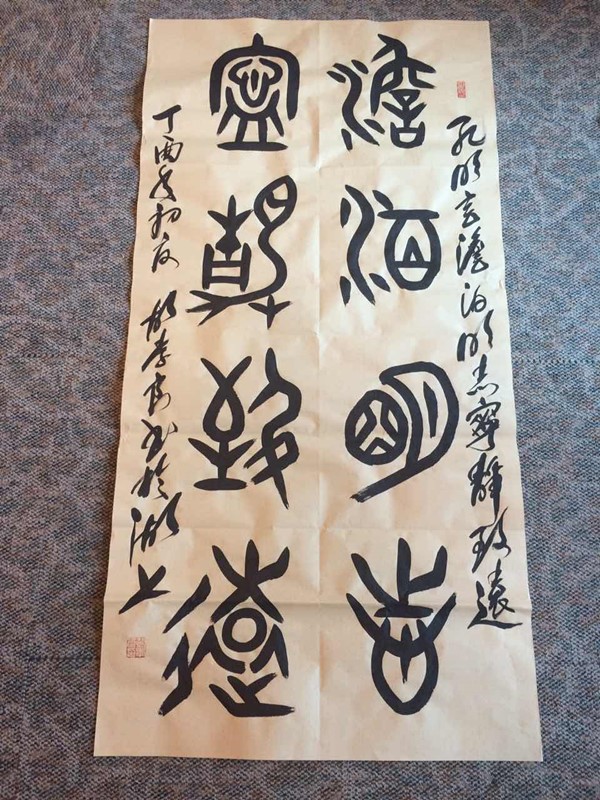 孔明言澹泊明志寧靜致遠
澹泊明志
寧靜致遠
丁酉年初夏 書於湖上